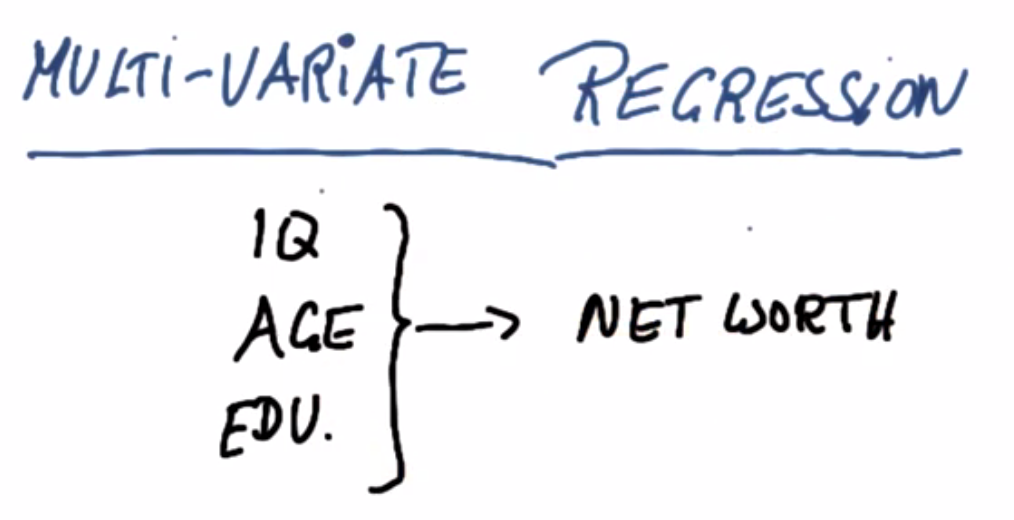 MULTI-VARIATE REGRESSION
IQ
AGE
EDU.
NET WORTH